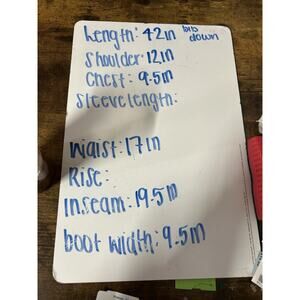 Length: 42in bib down
Shoulder: 12in
Chest: 9.5in
Sleeve length:
Waist: 17in
Rise:
Inseam: 19.5in
boot width: 9.5in